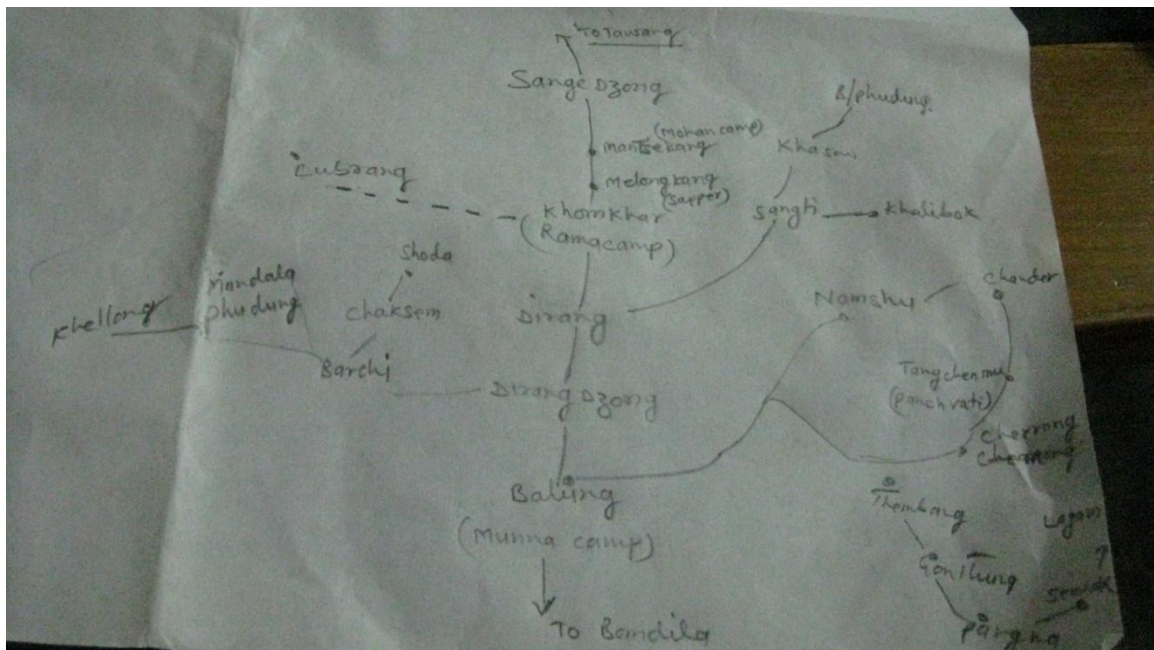 To Tawang
Sange Dzong
B/phudung
(Mohan camp)
Khasow
Lubrang
Melongkang
(Sapper)
Khomkhar
(Ramacamp)
Sangti
Khalibok
Shoda
Mandala
phudung
Chaksem
Khellong
Dirang
Namshu
Chander
Barchi
Dirang Dzong
Tangchenmu
(Panchvati)
Cherrong
Balung
(Munna camp)
Thembang
Lagam
Semnak
Pangma
To Bomdila